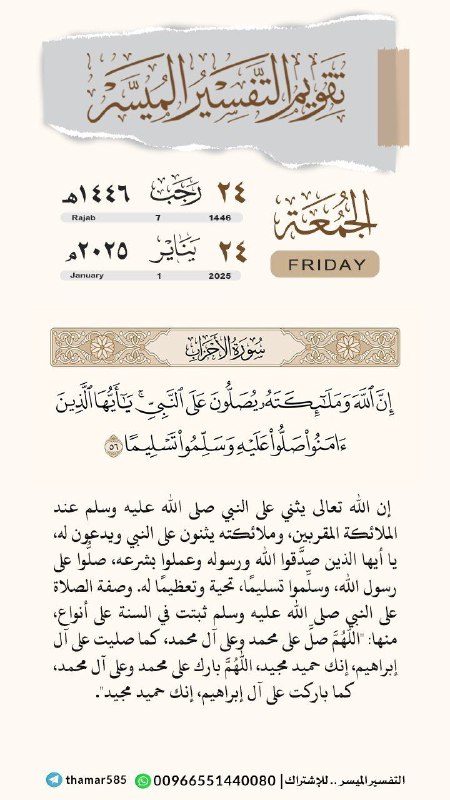 تقويم التفسير الميسر
الجمعة
FRIDAY
٢٤ رجب ١٤٤٦هـ
Rajab 7 1446
٢٤ يناير ٢٠٢٥م
January 1 2025
سورة الأحزاب
إِنَّ ٱللَّهَ وَمَلَٰٓئِكَتَهُۥ يُصَلُّونَ عَلَى ٱلنَّبِيِّۚ يَٰٓأَيُّهَا ٱلَّذِينَ
ءَامَنُواْ صَلُّواْ عَلَيْهِ وَسَلِّمُواْ تَسْلِيمًا ٥٦
إن الله تعالى يثني على النبي صلى الله عليه وسلم عند
الملائكة المقربين، وملائكته يثنون على النبي ويدعون له،
يا أيها الذين صدَّقوا الله ورسوله وعملوا بشرعه، صلُّوا على
رسول الله، وسلِّموا تسليمًا، تحية وتعظيمًا له. وصفة الصلاة
على النبي صلى الله عليه وسلم ثبتت في السنة على أنواع،
منها: "اللَّهُمَّ صلِّ على محمد وعلى آل محمد، كما صليت على آل
إبراهيم، إنك حميد مجيد، اللَّهُمَّ بارك على محمد وعلى آل محمد،
كما باركت على آل إبراهيم، إنك حميد مجيد".
التفسير الميسر .. للإشتراك | 00966551440080 thamar585